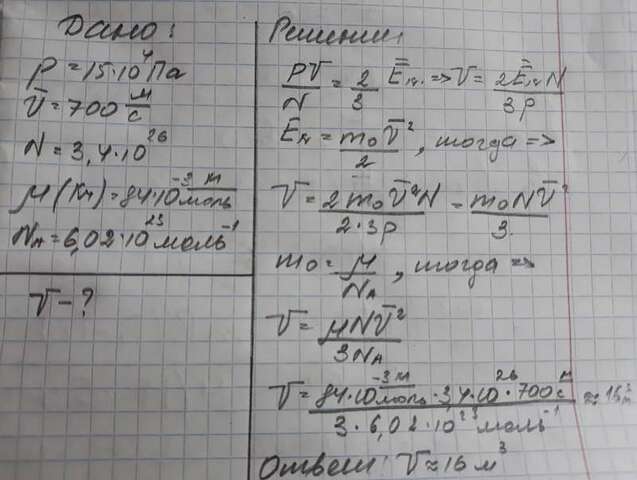 Дано:
p = 15·10⁴ Па
v̅ = 700 м/с
N = 3,4·10²⁶
μ(Kr) = 84·10⁻³ м/моль
N_A = 6,02·10²³ моль⁻¹
V - ?
Решение:
pV/N = 2/3 E̅к. => V = 2E̅кN/3p
Eк = m₀v̅²/2, тогда =>
V = 2m₀v̅²N/2·3p = m₀Nv̅²/3
m₀ = μ/N_A, тогда =>
V = μNv̅²/3N_A
V = 84·10⁻³ м/моль·3,4·10²⁶·700 м/с / 3·6,02·10²³ моль⁻¹ ≈ 16 м³
Ответ: V ≈ 16 м³